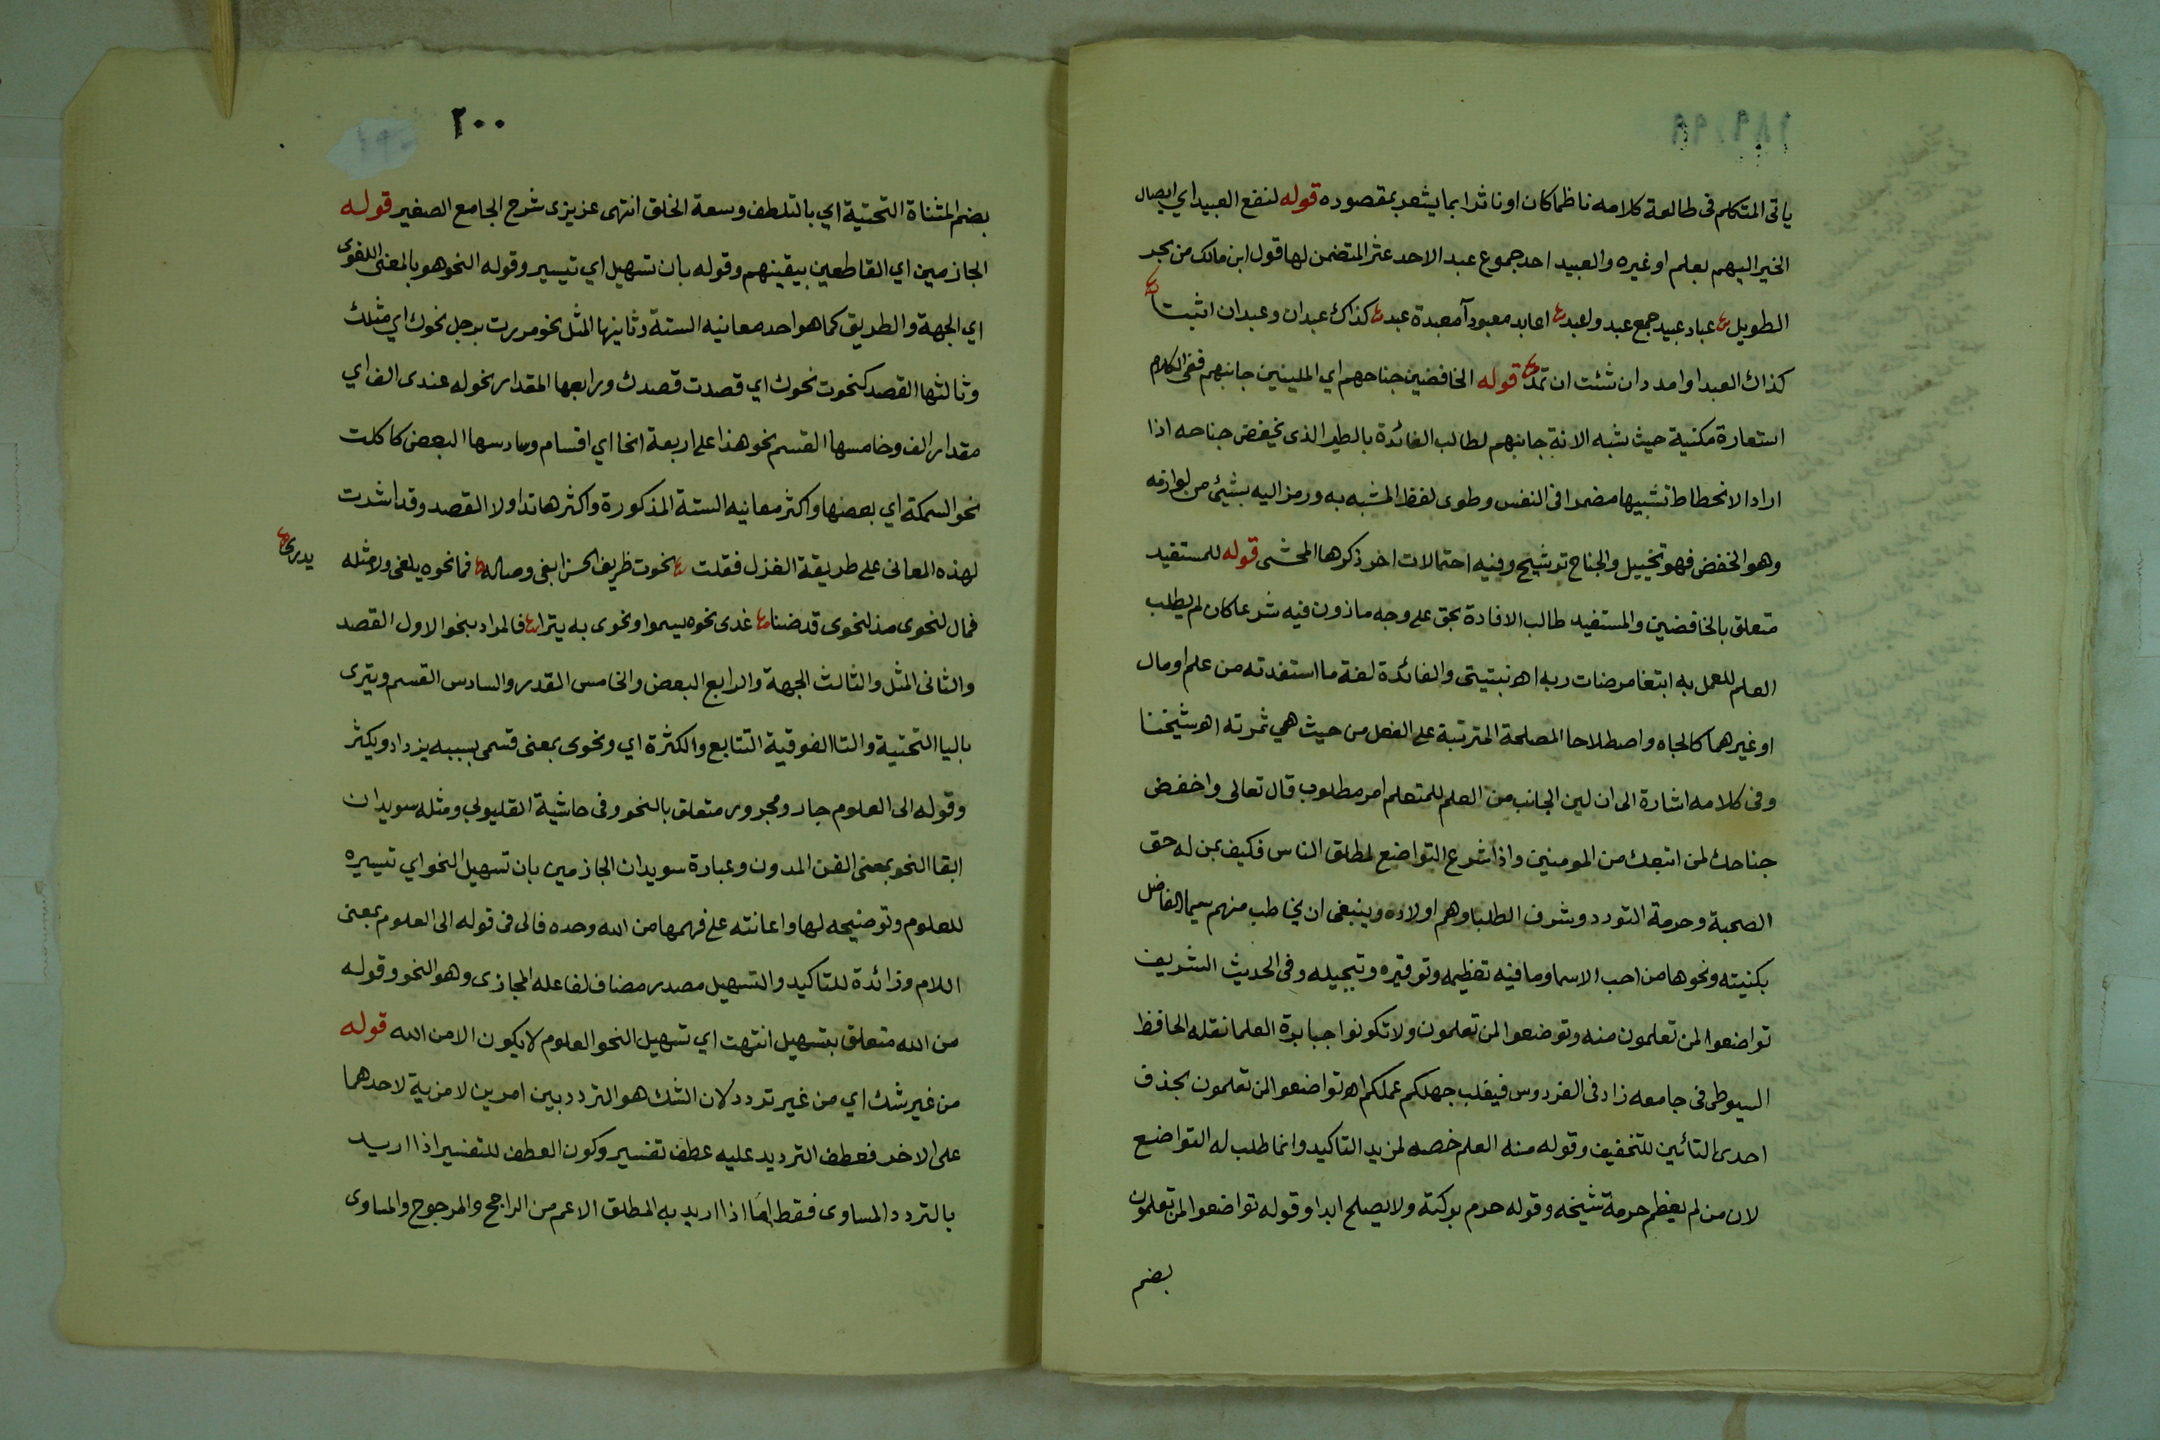 ياتى المتكلم فى طالعة كلامه ناظما كان او ناثرا بما يشعر بمقصوده قوله لنفع العبيد اي ايصال
الخير اليهم بعلم او غيره والعبيد احد جموع عبد الاحد عشر المتضمن لها قول ابن مالك من بحر
الطويل عباد عبيد جمع عبد واعبد اعابد معبودآ معبدة عبد كذاك عبدان وعبدان اثبتا
كذاك العبدا وامدد ان شئت ان تمد قوله الخافضين جناحهم اي الملينين جانبهم ففى الكلام
استعارة مكنية حيث شبه الانة جانبهم لطالب الفائدة بالطير الذى يخفض جناحه اذا
اراد الانحطاط تشبيها مضمرا فى النفس وطوى لفظ المشبه به ورمز اليه بشيئ من لوازمه
وهو الخفض فهو تخييل والجناح ترشيح وفيه احتمالات اخر ذكرها المحشى قوله للمستفيد
متعلق بالخافضين والمستفيد طالب الافادة بحق على وجه ماذون فيه شرعا كان لم يطلب
العلم للعمل به ابتغا مرضات ربه اهـ نبتيتى والفائدة لغة ما استفدته من علم او مال
او غيرهما كالجاه واصطلاحا المصلحة المترتبة على الفعل من حيث هي ثمرته اهـ شيخنا
وفى كلامه اشارة الى ان لين الجانب من العلم للمتعلم امر مطلوب قال تعالى واخفض
جناحك لمن اتبعك من المومنين واذا شرع التواضع لمطلق الناس فكيف بمن له حق
الصحبة وحرمة التودد وشرف الطلبا وهم اولاده وينبغى ان يخاطب منهم سيما الفاضل
بكنيته ونحوها من احب الاسما وما فيه تعظيمه وتوقيره وتبجيله وفى الحديث الشريف
تواضعوا لمن تعلمون منه وتوضعوا لمن تعلمون ولا تكونوا جبابرة العلما نقله الحافظ
السيوطى فى جامعه زاد فى الفردوس فيغلب جهلكم عملكم اهـ تواضعوا لمن تعلمون بحذف
احدى التائين للتخفيف وقوله منه العلم خصه لمزيد التاكيد وانما طلب له التواضع
لان من لم يعظم حرمة شيخه وقوله حرم بركته ولا يصلح ابدا وقوله تواضعوا لمن تعلمون
بضم
٢٠٠
بضم المثناة التحتية اي بالتلطف وسعة الخلق انتهى عزيزى شرح الجامع الصغير قوله
الجازمين اي القاطعين بيقينهم وقوله بان تسهيل اي تيسير وقوله النحو هو بالمعنى اللغوى
اي الجهة والطريق كما هو احد معانيه الستة وثانيها المثل نحو مررت برجل نحوك اي مثلك
وثالثها القصد كنحوت نحوك اي قصدت قصدك ورابعها المقدار نحو له عندى الف اي
مقدار الف وخامسها القسم نحو هذا على اربعة انحا اي اقسام وسادسها البعض كاكلت
نحو السمكة اي بعضها واكثر معانيه الستة المذكورة واكثرها تداولا القصد وقد اشرت
لهذه المعانى على طريقة الغزل فقلت نحوت ظريف الحسن ابغى وصاله فما نحوه يلغى ولا مثله يدرى
فمال لنحوى مذ لنحوى قد ضنا غدى نحوه يسموا ونحوى به يترا فالمراد بنحو الاول القصد
والثانى المثل والثالث الجهة والرابع البعض والخامس القدر والسادس القسم ويترى
باليا التحتية والتا الفوقية التتابع والكثرة اي ونحوى بمعنى قسمى بسببه يزداد ويكثر
وقوله الى العلوم جار ومجرور متعلق بالنحو وفى حاشية القليوبي ومثله سويدان
ابقا النحو بمعنى الفن المدون وعبارة سويدان الجازمين بان تسهيل النحو اي تيسيره
للعلوم وتوضيحه لها واعانته على فهمها من الله وحده فالى فى قوله الى العلوم بمعنى
اللام وزائدة للتاكيد والتسهيل مصدر مضاف لفاعله المجازى وهو النحو وقوله
من الله متعلق بتسهيل انتهت اي تسهيل النحو العلوم لا يكون الا من الله قوله
من غير شك اي من غير تردد لان الشك هو التردد بين امرين لا مزية لاحدهما
على الاخر فعطف الترديد عليه عطف تفسير وكون العطف للتفسير اذا اريد
بالتردد المساوى فقط اما اذا اريد به المطلق الاعم من الراجح والمرجوح والمساوى